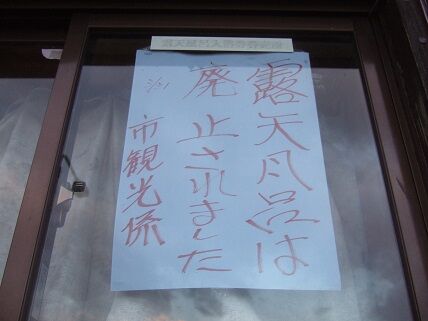 露天風呂は
廃止されました
3/31
市観光係